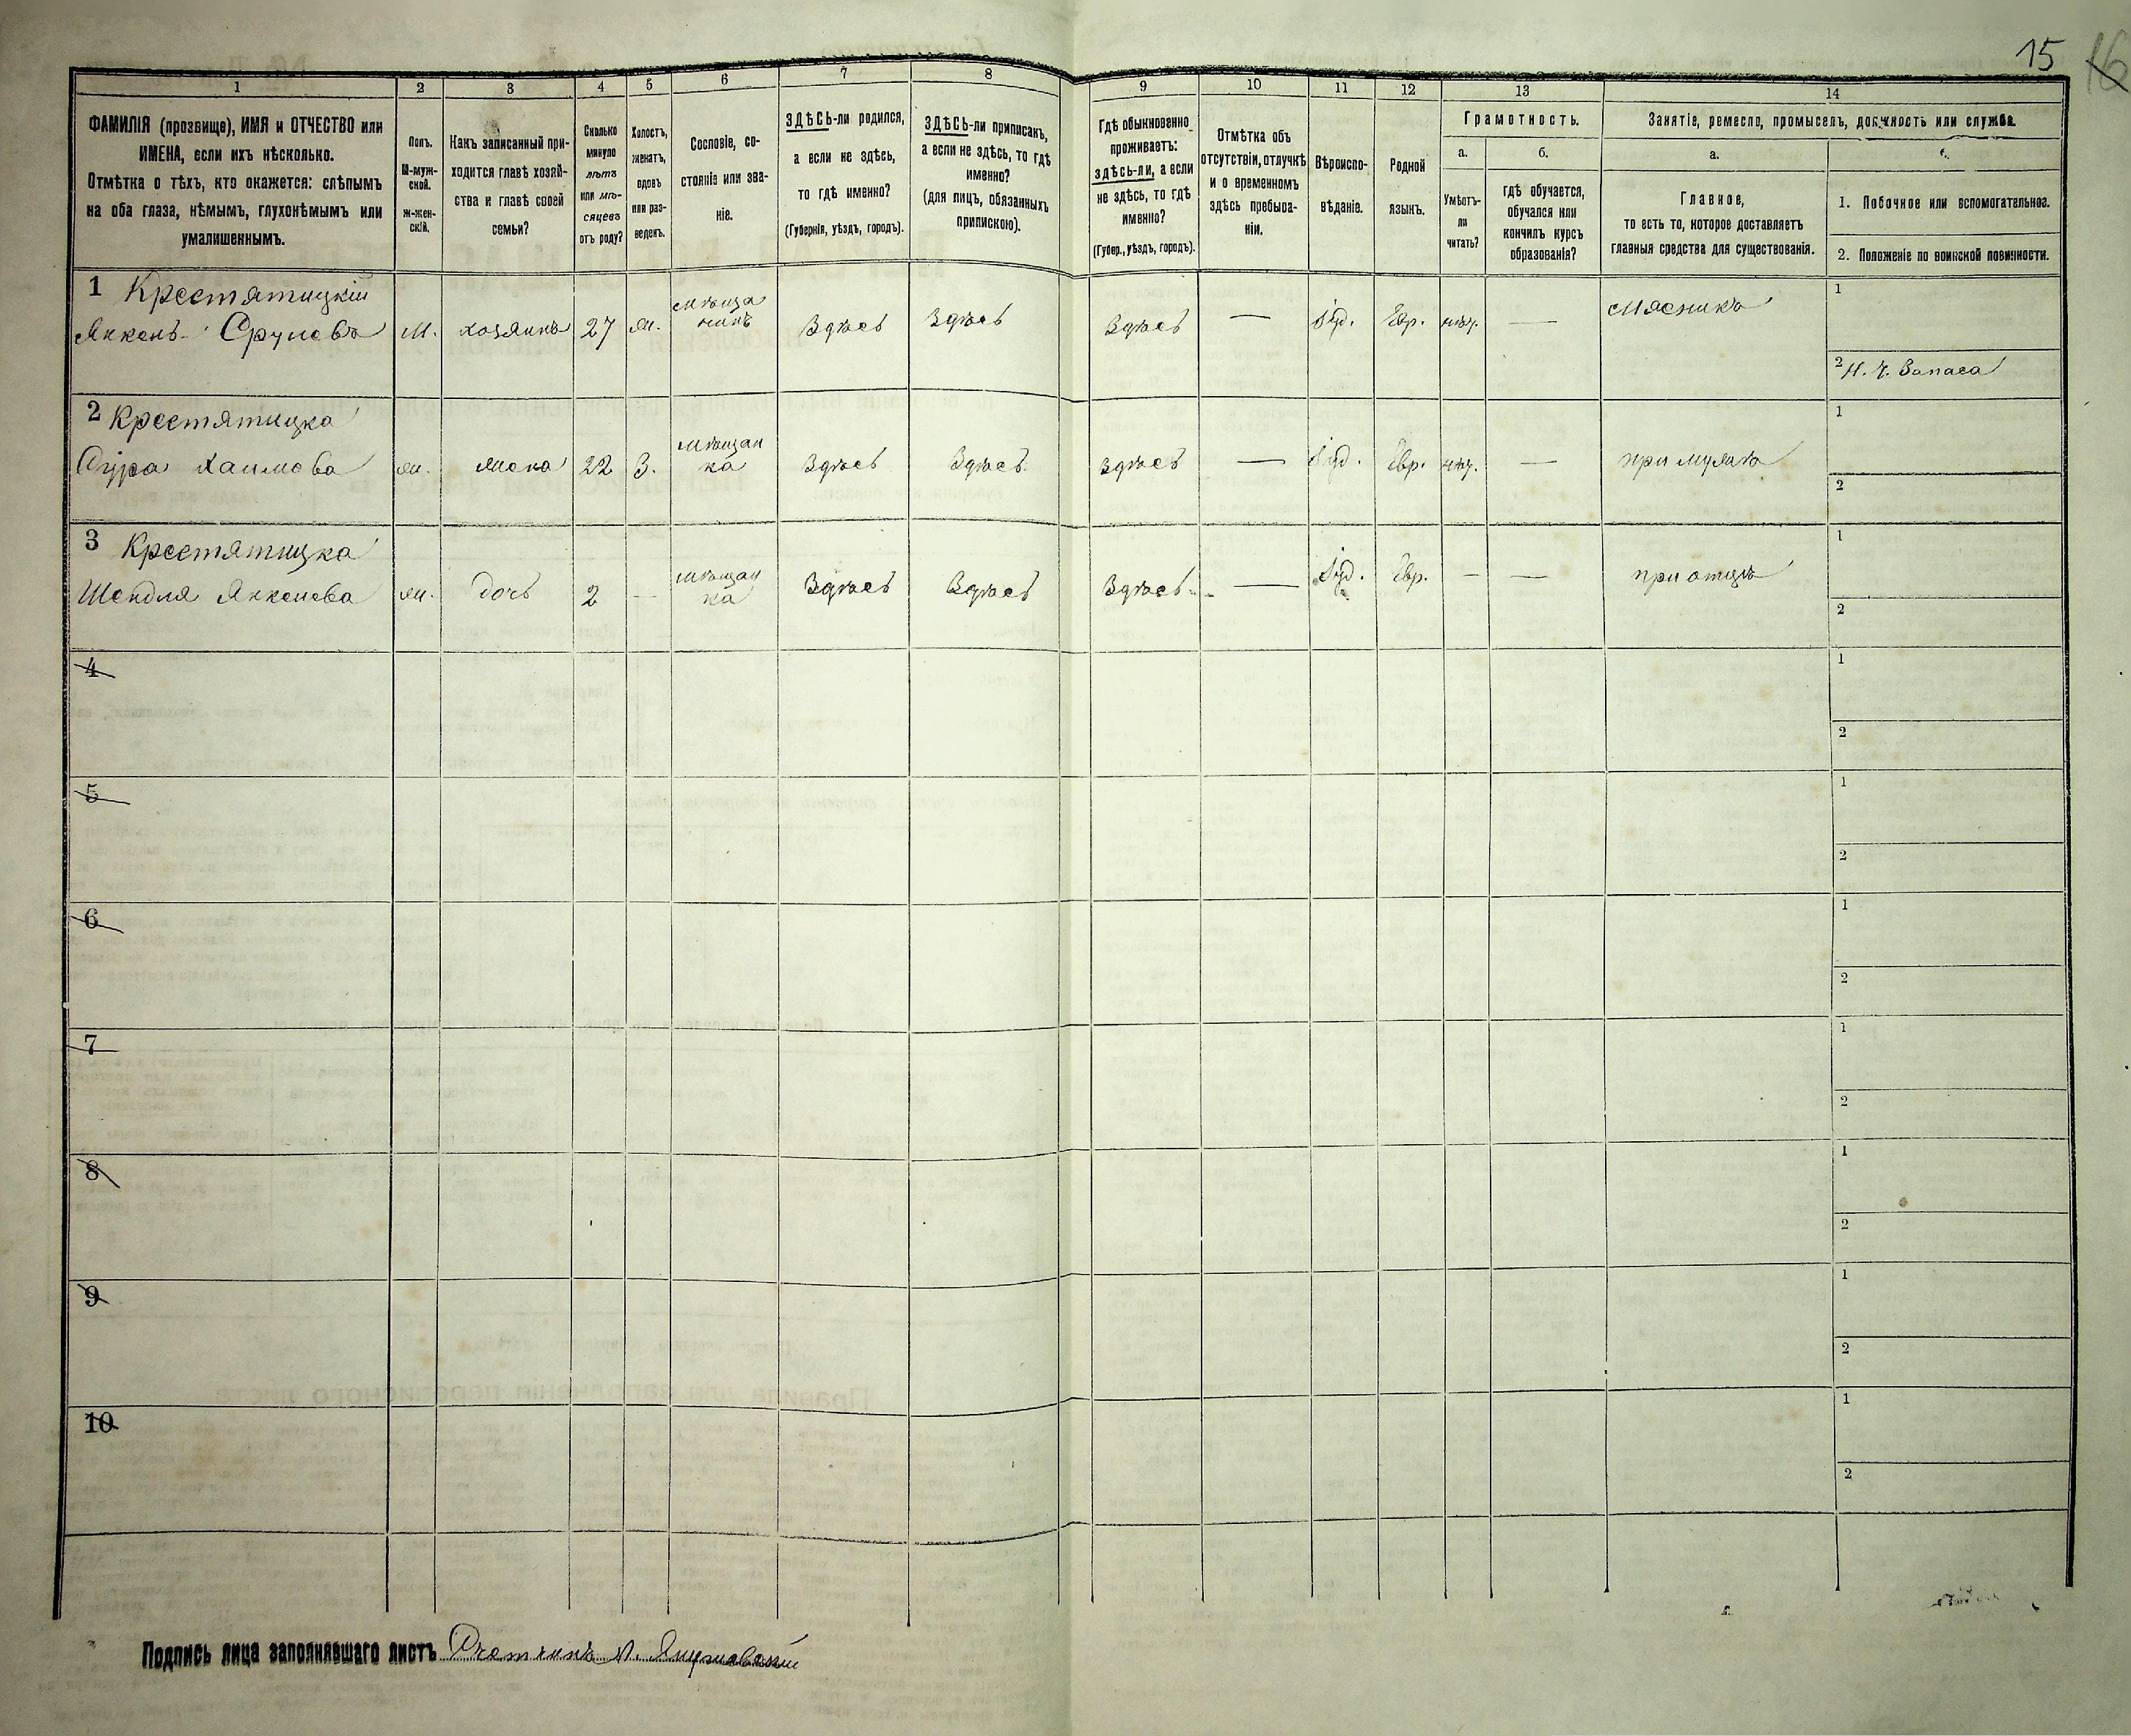 15
16
1
2
3
4
5
6
7
8
9
10
11
12
13
14
ФАМИЛІЯ (прозвище), ИМЯ и ОТЧЕСТВО или
ИМЕНА, если ихъ нѣсколько.
Отмѣтка о тѣхъ, кто окажется: слѣпымъ
на оба глаза, нѣмымъ, глухонѣмымъ или
умалишеннымъ.
Полъ.
М-муж-
ской.
Ж-жен-
скій.
Какъ записанный при-
ходится главѣ хозяй-
ства и главѣ своей
семьи?
Сколько
минуло
лѣтъ
или мѣ-
сяцевъ
отъ роду?
Холостъ,
женатъ,
вдовъ
или раз-
веденъ.
Сословіе, со-
стояніе или зва-
ніе.
ЗДѢСЬ-ли родился,
а если не здѣсь,
то гдѣ именно?
(Губернія, уѣздъ, городъ).
ЗДѢСЬ-ли приписанъ,
а если не здѣсь, то гдѣ
именно?
(для лицъ, обязанныхъ
припискою).
Гдѣ обыкновенно
проживаетъ:
здѣсь-ли, а если
не здѣсь, то гдѣ
именно?
(Губер., уѣздъ, городъ).
Отмѣтка объ
отсутствіи, отлучкѣ
и о временномъ
здѣсь пребыва-
ніи.
Вѣроиспо-
вѣданіе.
Родной
языкъ.
Грамотность.
а.
Умѣетъ-
ли
читать?
б.
гдѣ обучается,
обучался или
кончилъ курсъ
образованія?
Занятіе, ремесло, промыселъ, должность или служба.
а.
Главное,
то есть то, которое доставляетъ
главныя средства для существованія.
б.
1. Побочное или вспомогательное.
2. Положеніе по воинской повинности.
1 Крестятицкій
Янкель Срулевъ
М.
хозяинъ
27
ж.
мѣща
нинъ
Здѣсь
Здѣсь
Здѣсь
—
Іуд.
Евр.
нѣт.
—
Мясникъ
1
2 Н. ч. Запаса
2 Крестятицка
Сура Хаимова
ж.
жена
22
З.
мѣщан
ка
Здѣсь
Здѣсь
Здѣсь
—
Іуд.
Евр.
нѣт.
—
при мужѣ
1
2
3 Крестятицка
Шендля Янкелева
ж.
дочь
2
—
мѣщан
ка
Здѣсь
Здѣсь
Здѣсь
—
Іуд.
Евр.
—
—
при отцѣ
1
2
4
1
2
5
1
2
6
1
2
7
1
2
8
1
2
9
1
2
10
1
2
Подпись лица заполнявшаго листъ Счетчикъ